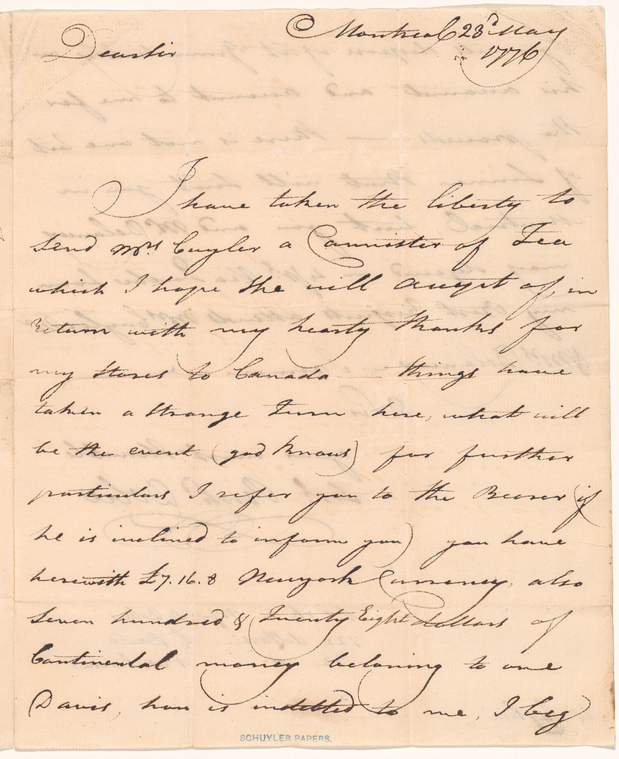 Montreal 23d May
1776
Dearsir
I have taken the liberty to
send Mrs. Cuyler a Cannister of Tea
which I hope she will accept of, in
return with my hearty thanks for
my stores to Canada — things have
taken a strange turn here, what will
be the event (god knows) for further
particulars I refer you to the Bearer (if
he is inclined to inform you) you have
herewith £7.16.8 Newyork Currency, also
seven hundred & Twenty Eight dollars of
Continental money beloning to one
Davis, how is indebted to me, I beg
SCHUYLER PAPERS.